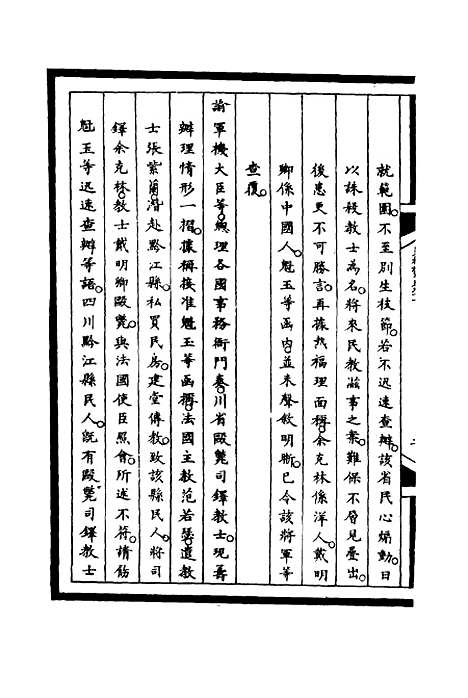 就範圍。不至別生枝節。若不迅速查辦。該省民心煽動。日
以誅殺教士為名。將來民教滋事之案。難保不層見疊出。
後患更不可勝言。再據熱福理面稱。余克林係洋人。戴明
卿係中國人。魁玉等函內。並未聲敘明晰。已令該將軍等
查復。
諭軍機大臣等。總理各國事務衙門奏。川省毆斃司鐸教士。現籌
辦理情形一摺。據稱接准魁玉等函稱。法國主教范若瑟。遣教
士張紫蘭潛赴黔江縣。私買民房。建堂傳教。致該縣民人。將司
鐸余克林。教士戴明卿毆斃。與法國使臣照會。所述不符。請飭
魁玉等迅速查辦等語。四川黔江縣民人。既有毆斃司鐸教士